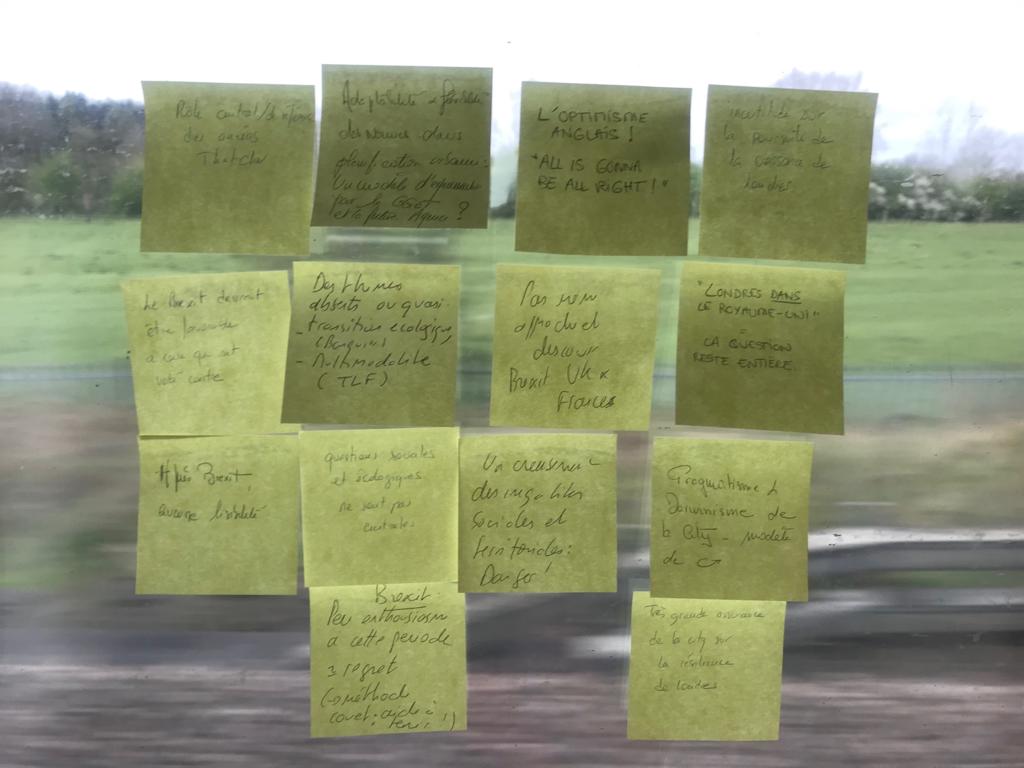 Rôle central/de
des années
Thatcher
Adaptabilité &
dans
planification urbaine :
Un modèle d'
par le
et la ?
L'OPTIMISME
ANGLAIS !
"ALL IS GONNA
BE ALL RIGHT !"
incertitude sur
la poursuite de
la croissance de
Londres
Le Brexit devrait
être favorable
à ceux qui ont
voté contre
Des thèmes
absents ou quasi.
- transition écologique,
- Multimodalité
(TLF)
Pas mm
approche et
discours
Brexit UK x
France
"LONDRES DANS
LE ROYAUME-UNI"
=
LA QUESTION
RESTE ENTIÈRE.
Après Brexit,
aucune lisibilité
questions sociales
et écologiques
ne sont pas
centrales
Un creusement
des inégalités
sociales et
territoriales :
Danger !
Pragmatisme &
Darwinisme de
la City - modèle
de
Brexit.
Peu enthousiasm
à cette période
regret
(méthode
Très grande assurance
de la city sur
la résilience
de Londres